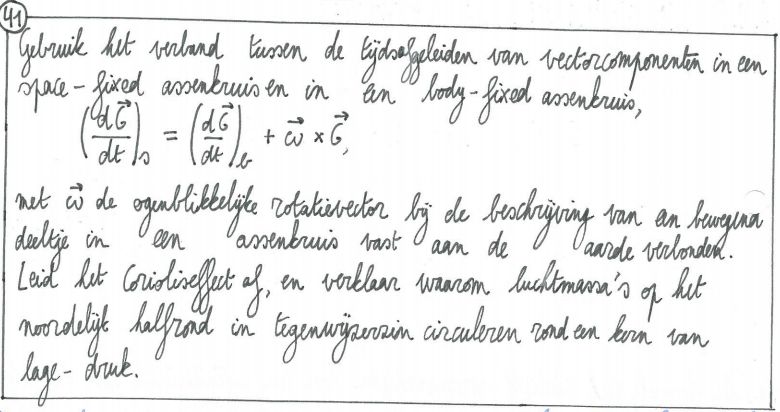 41
Gebruik het verband tussen de tijdsafgeleiden van vectorcomponenten in een
space-fixed assenkruis en in een body-fixed assenkruis,
(dG⃗/dt)s = (dG⃗/dt)b + ω⃗ × G⃗,
met ω⃗ de ogenblikkelijke rotatievector bij de beschrijving van een bewegend
deeltje in een assenkruis vast aan de aarde verbonden.
Leid het Corioliseffect af, en verklaar waarom luchtmassa's op het
noordelijk halfrond in tegenwijzerzin circuleren rond een kern van
lage-druk.